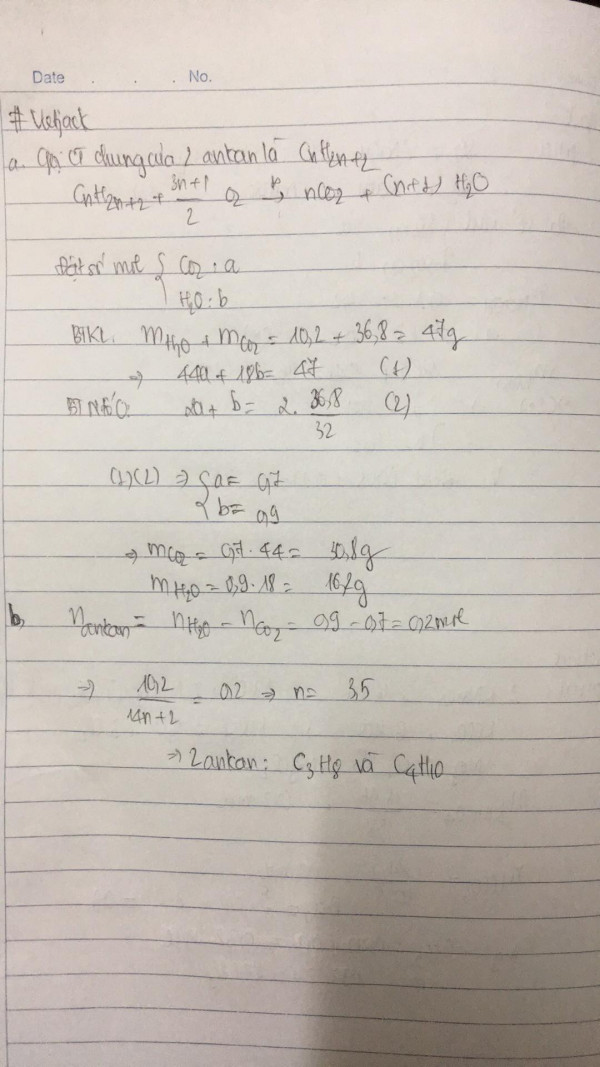 Date . . . No.
# Vietjack
a. Gọi CT chung của 2 ankan là CnH2n+2
CnH2n+2 + 3n+1/2 O2 t°→ nCO2 + (n+1) H2O
Đặt số mol { CO2: a
H2O: b
BTKL: mH2O + mCO2 = 10,2 + 36,8 = 47g
⇒ 44a + 18b = 47 (1)
BT Ntố O: 2a + b = 2. 36,8/32 (2)
(1)(2) ⇒ { a = 0,7
b = 0,9
⇒ mCO2 = 0,7. 44 = 30,8g
mH2O = 0,9. 18 = 16,2g
b, nankan = nH2O - nCO2 = 0,9 - 0,7 = 0,2 mol
⇒ 10,2/14n+2 = 0,2 ⇒ n = 3,5
⇒ 2 ankan: C3H8 và C4H10